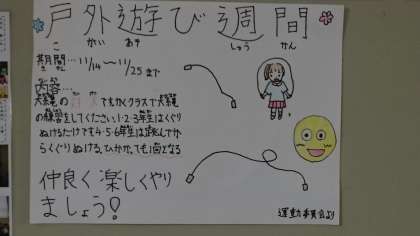 戸外遊び週間
こ がい あそ しゅう かん
期間…11/14〜11/25まで
き かん
内容…
大縄の
でもかくクラスで大縄
の練習をしてください。1・2・3年生はくぐり
ぬけるだけでも4・5・6年生は跳んでか
らくぐりぬける。ひっかかっても1回となる
仲良く楽しくやり
ましょう!
運動委員会より